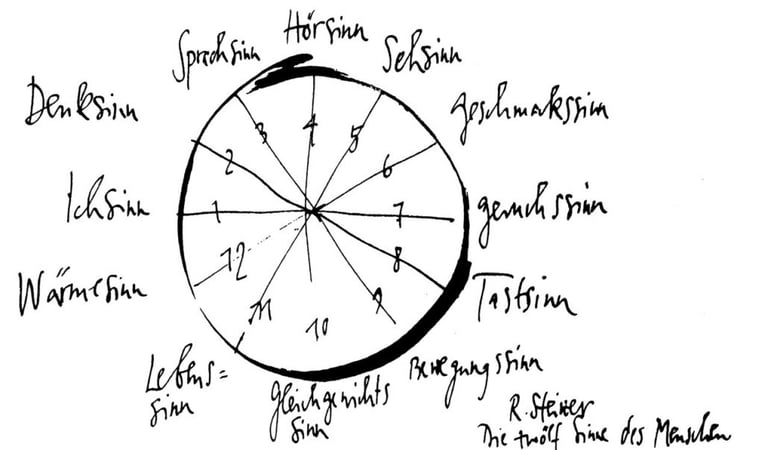 Hörsinn
Sprachsinn
Sehsinn
Denksinn
Geschmackssinn
Ichsinn
Geruchssinn
Wärmesinn
Tastsinn
Lebens=
sinn
Gleichgewichts
sinn
Bewegungssinn
1
2
3
4
5
6
7
8
9
10
11
12
R. Steiner
Die zwölf Sinne des Menschen